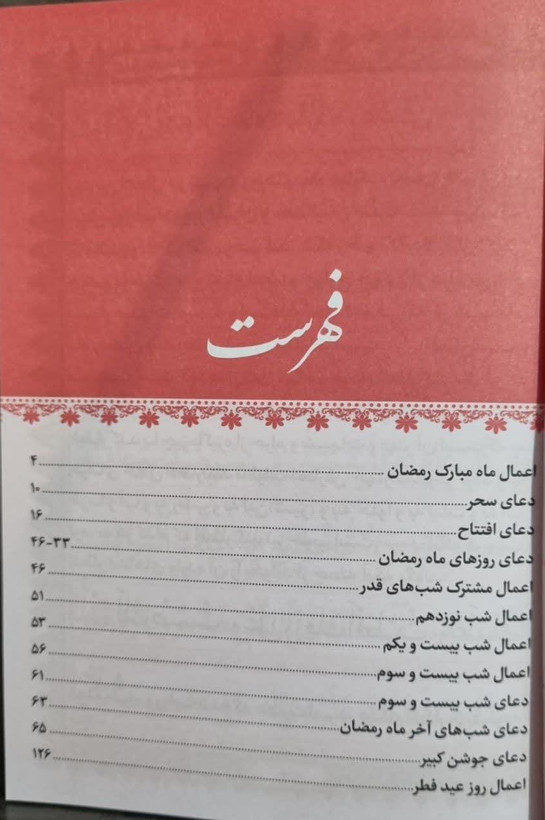 فهرست
اعمال ماه مبارک رمضان ........ ۴
دعای سحر ........ ۱۰
دعای افتتاح ........ ۱۶
دعای روزهای ماه رمضان ........ ۳۳-۴۶
اعمال مشترک شب‌های قدر ........ ۴۶
اعمال شب نوزدهم ........ ۵۱
اعمال شب بیست و یکم ........ ۵۳
اعمال شب بیست و سوم ........ ۵۶
دعای شب بیست و سوم ........ ۶۱
دعای شب‌های آخر ماه رمضان ........ ۶۳
دعای جوشن کبیر ........ ۶۵
اعمال روز عید فطر ........ ۱۲۶